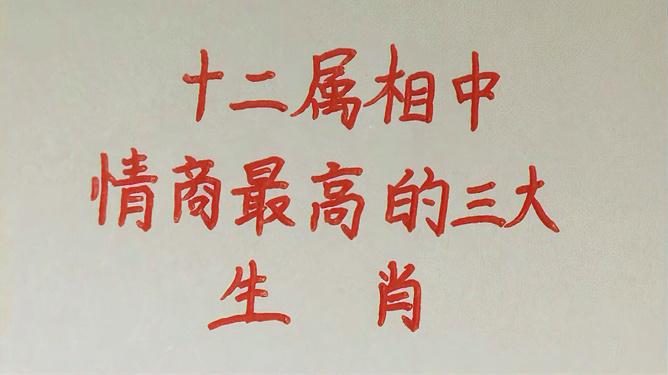 十二属相中
情商最高的三大
生肖